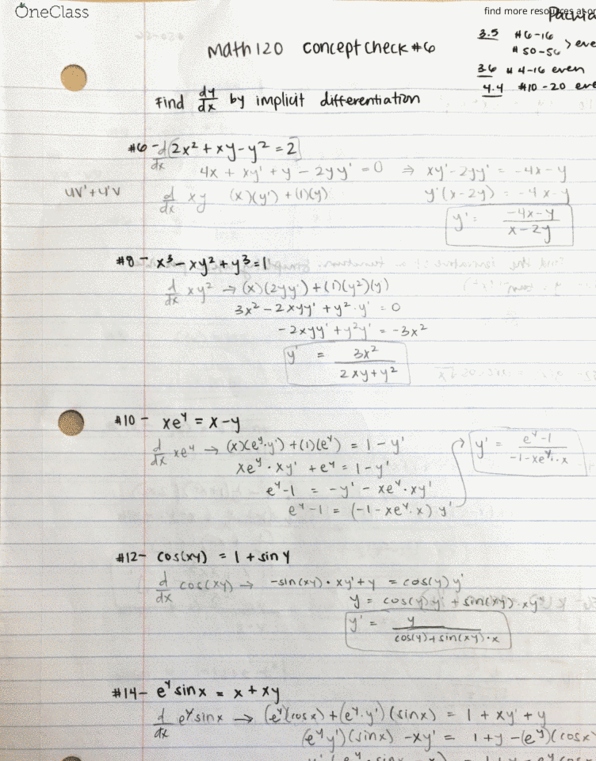 OneClass
find more resources at
3.5 #6-16
#50-56 > eve
3.6 #4-16 even
4.4 #10-20 eve
Math 120 concept check #6
Find dy/dx by implicit differentiation
#6 - d/dx [2x² + xy - y² = 2]
4x + xy' + y - 2yy' = 0 ⇒ xy' - 2yy' = -4x - y
uv' + u'v
d/dx xy (x)(y') + (1)(y) y'(x-2y) = -4x - y
y' = -4x-y / x-2y
#8 - x³ - xy² + y³ = 1
d/dx xy² → (x)(2yy') + (1)(y²)(y)
3x² - 2xyy' + y² · y' = 0
-2xyy' + y²y' = -3x²
y' = 3x² / 2xy + y²
#10 - xe^y = x - y
d/dx xe^y → (x)(e^y · y') + (1)(e^y) = 1 - y'
xe^y · xy' + e^y = 1 - y'
e^y - 1 = -y' - xe^y · xy'
e^y - 1 = (-1 - xe^y · x) y'
y' = e^y - 1 / -1 - xe^y · x
#12 - cos(xy) = 1 + sin y
d/dx cos(xy) → -sin(xy) · xy' + y = cos(y) y'
y = cos(y) y' + sin(xy) · xy'
y' = y / cos(y) + sin(xy) · x
#14 - e^y sin x = x + xy
d/dx e^y sin x → (e^y)(cos x) + (e^y · y')(sin x) = 1 + xy' + y
(e^y y')(sin x) - xy' = 1 + y - (e^y)(cos x